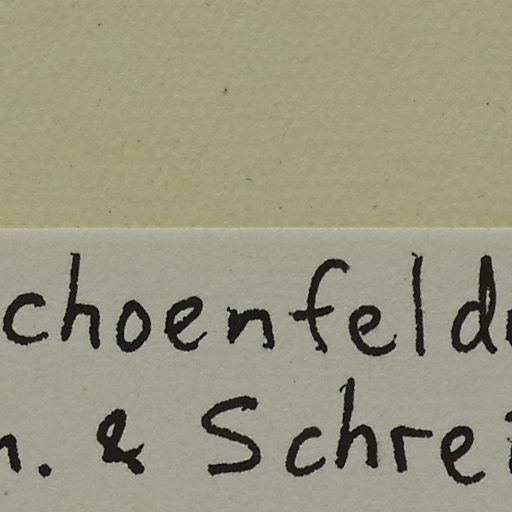 choenfeld
n. & Schrei